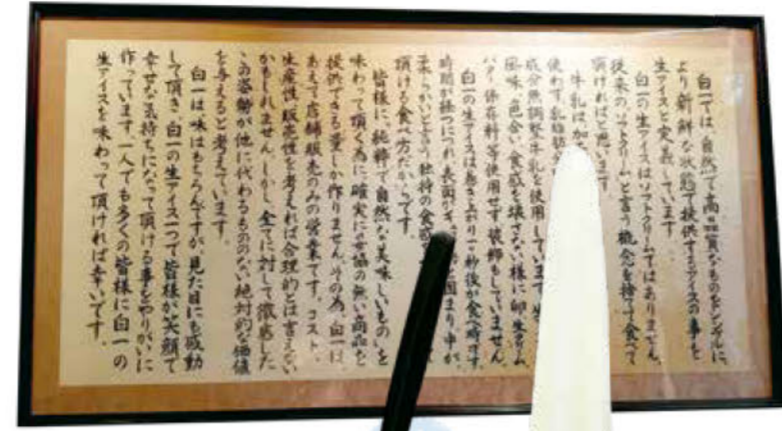 白一では、自然で高品質なものをシンプルに、
より新鮮な状態で提供するアイスの事を
生アイスと定義しています。
白一の生アイスはソフトクリームではありません。
従来のソフトクリームと言う概念を捨てて食べて
頂ければと思います。
牛乳は加
使わず、乳脂肪
成分無調整牛乳を使用しています。
風味、色合い、食感を壊さない様に卵、生クリーム、
バター、保存料等使用せず装飾もしていません。
白一の生アイスは巻き上がり一秒後が食べ時です。
時間が経つにつれ表面が 固まり、中が
柔らかいと言う独特の食感
頂ける食べ方だからです。
皆様に、純粋で自然な美味しいものを
味わって頂く為に確実に妥協の無い商品を
提供できる量しか作りません。その為、白一は、
あえて店舗販売のみの営業です。コスト、
生産性、販売性を考えれば合理的とは言えない
かもしれません。しかし、全てに対して徹底した
この姿勢が他に代わるもののない絶対的な価値
を与えると考えています。
白一は味はもちろんですが、見た目にも感動
して頂き、白一の生アイス一つで皆様が笑顔で
幸せな気持ちになって頂ける事をやりがいに
作っています。一人でも多くの皆様に白一の
生アイスを味わって頂ければ幸いです。